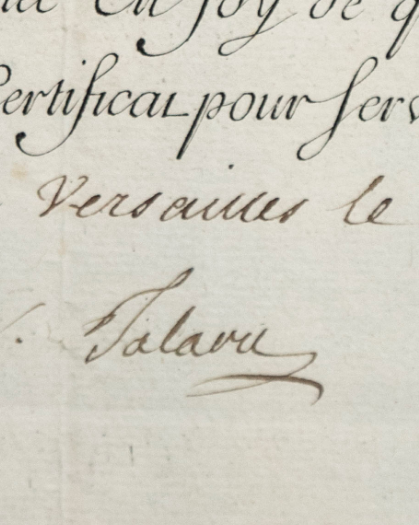 En foy de q
Certificat pour serv
Versailles le
Talaru